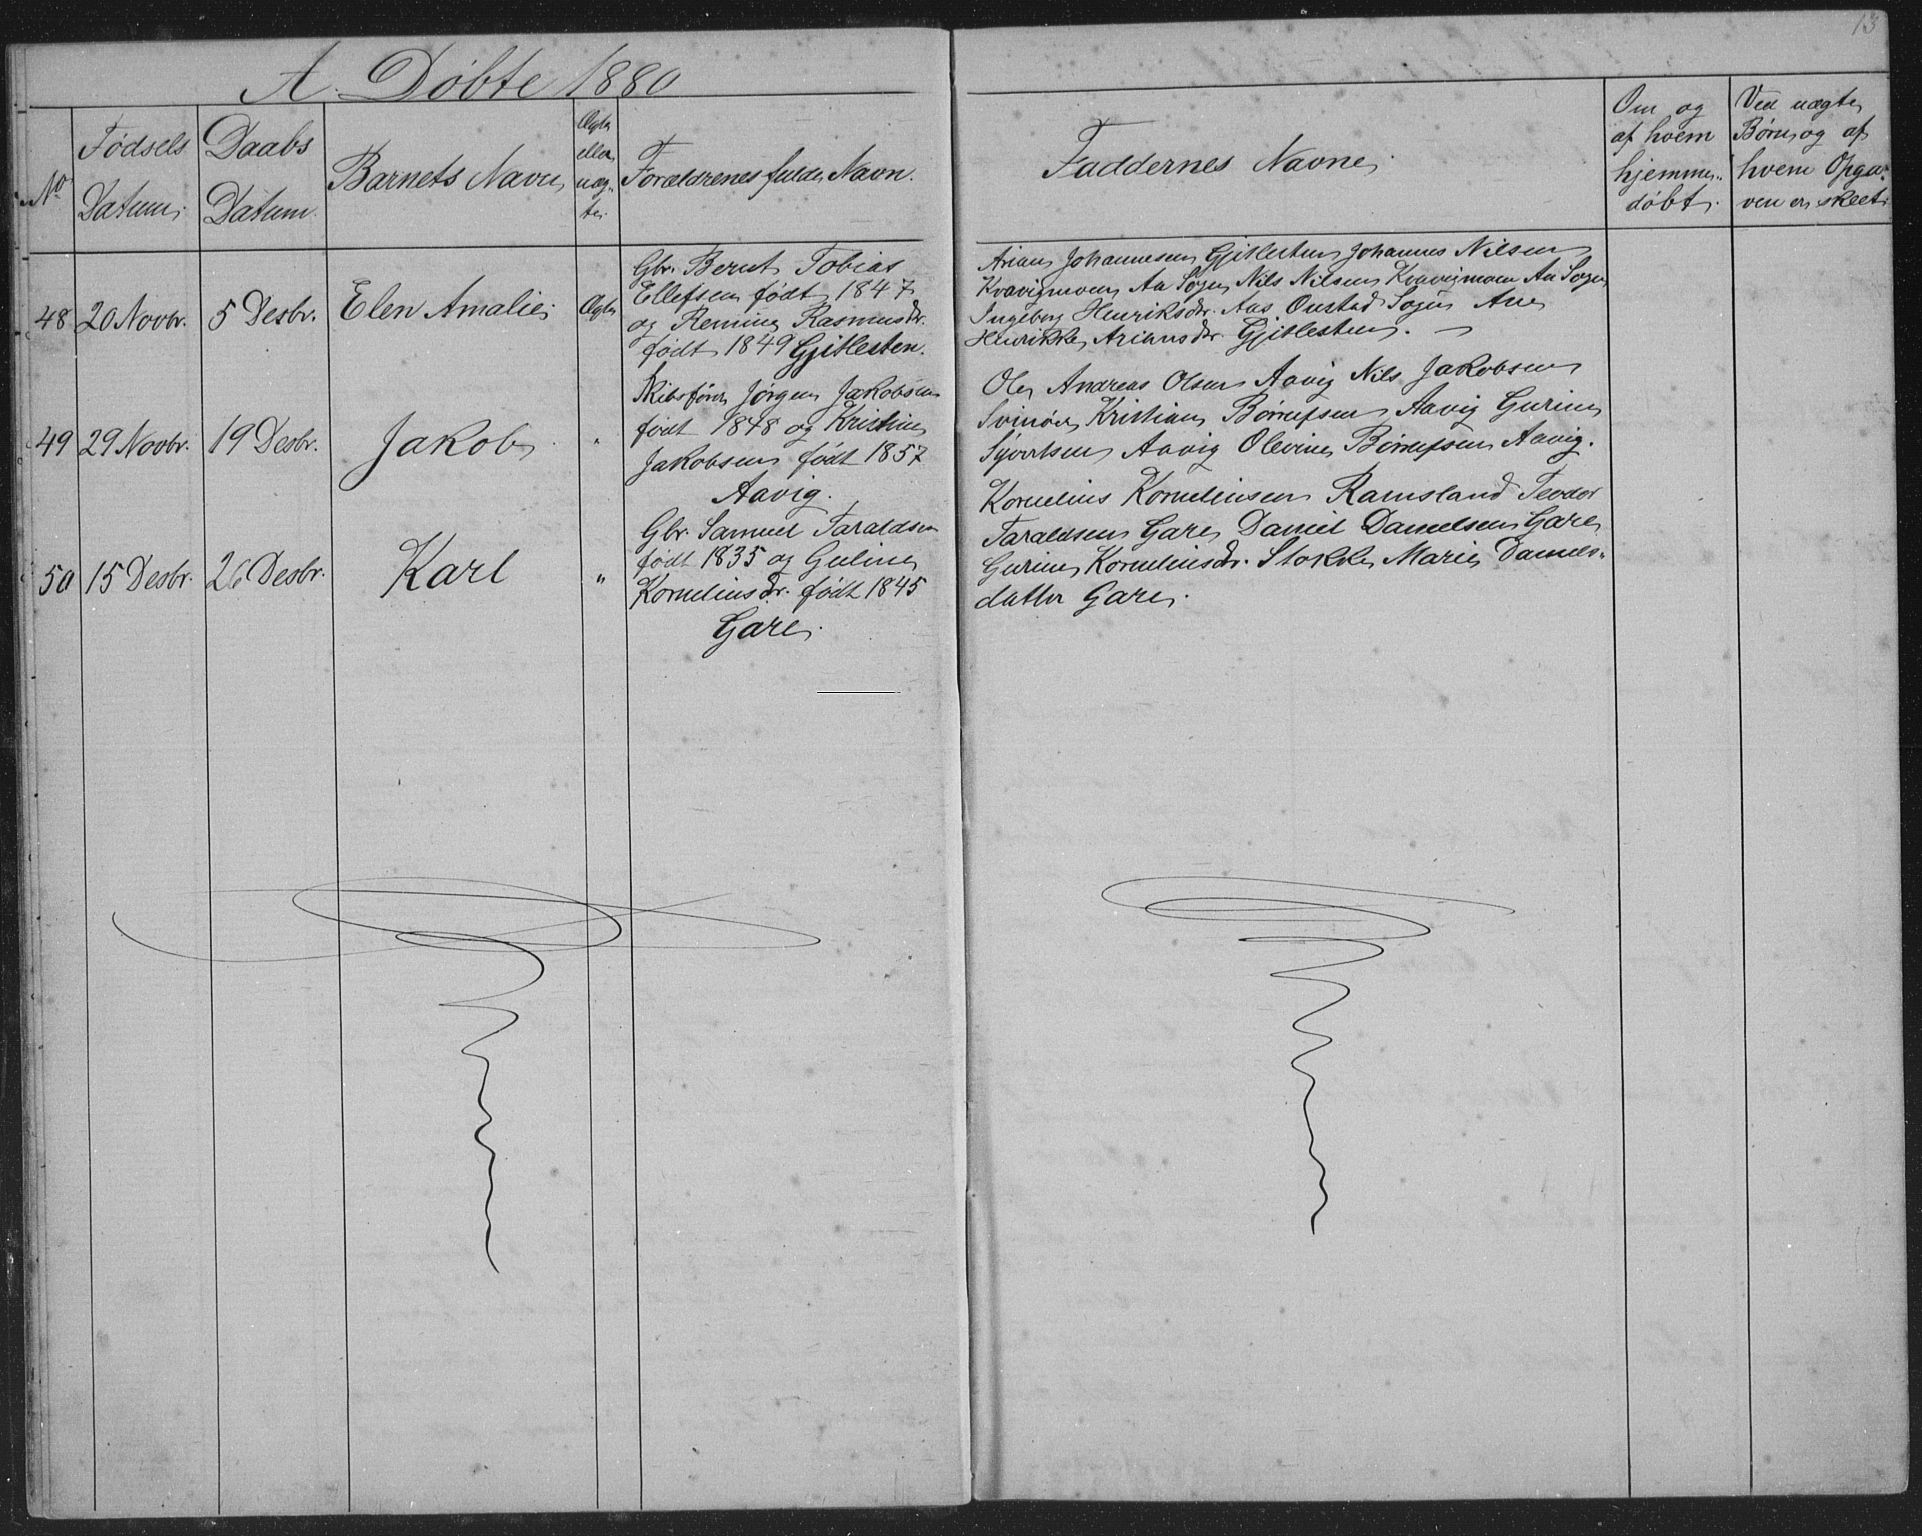 13
A. Døbte 1880
No
Fødsels
Datum.
Daabs
Datum.
Barnets Navn
Ægte
eller
uæg-
te.
Forældrenes fulde Navn.
Faddernes Navne.
Om og
af hvem
hjemme-
døbt.
Ved uægte
Børn, og af
hvem Opga-
ven er skeet.
48 20 Novbr. 5 Desbr. Elen Amalie. Ægte
Gbr. Bernt Tobias
Ellefsen født 1847
og Remine Rasmusdr.
født 1849 Gjitlesten.
Arian Johannesen Gjitlesten Johannes Nilsen
Kvavigmoen Aa Sogn, Nils Nilsen Kvavigmoen Aa Sogn,
Ingeborg Henriksdr. Aas Oustad Sogn Ane
Henrikke Ariansdr. Gjitlesten. —
49 29 Novbr. 19 Desbr. Jakob "
Skibsfører Jørgen Jakobsen
født 1848 og Kristine
Jakobsen født 1857
Aavig.
Ole Andreas Olsen Aavig Nils Jakobsen
Svinør, Kristian Børrufsen Aavig Gurine
Syvertsen Aavig Olevine Børrufsen Aavig.
50 15 Desbr. 26 Desbr. Karl "
Gbr. Samuel Taraldsen
født 1835 og Guline
Korneliusdr. født 1845
Gare.
Kornelius Korneliusen Ramsland Teodor
Taraldsen Gare, Daniel Danielsen Gare
Gurine Korneliusdr. Stokke Marie Daniels-
datter Gare.